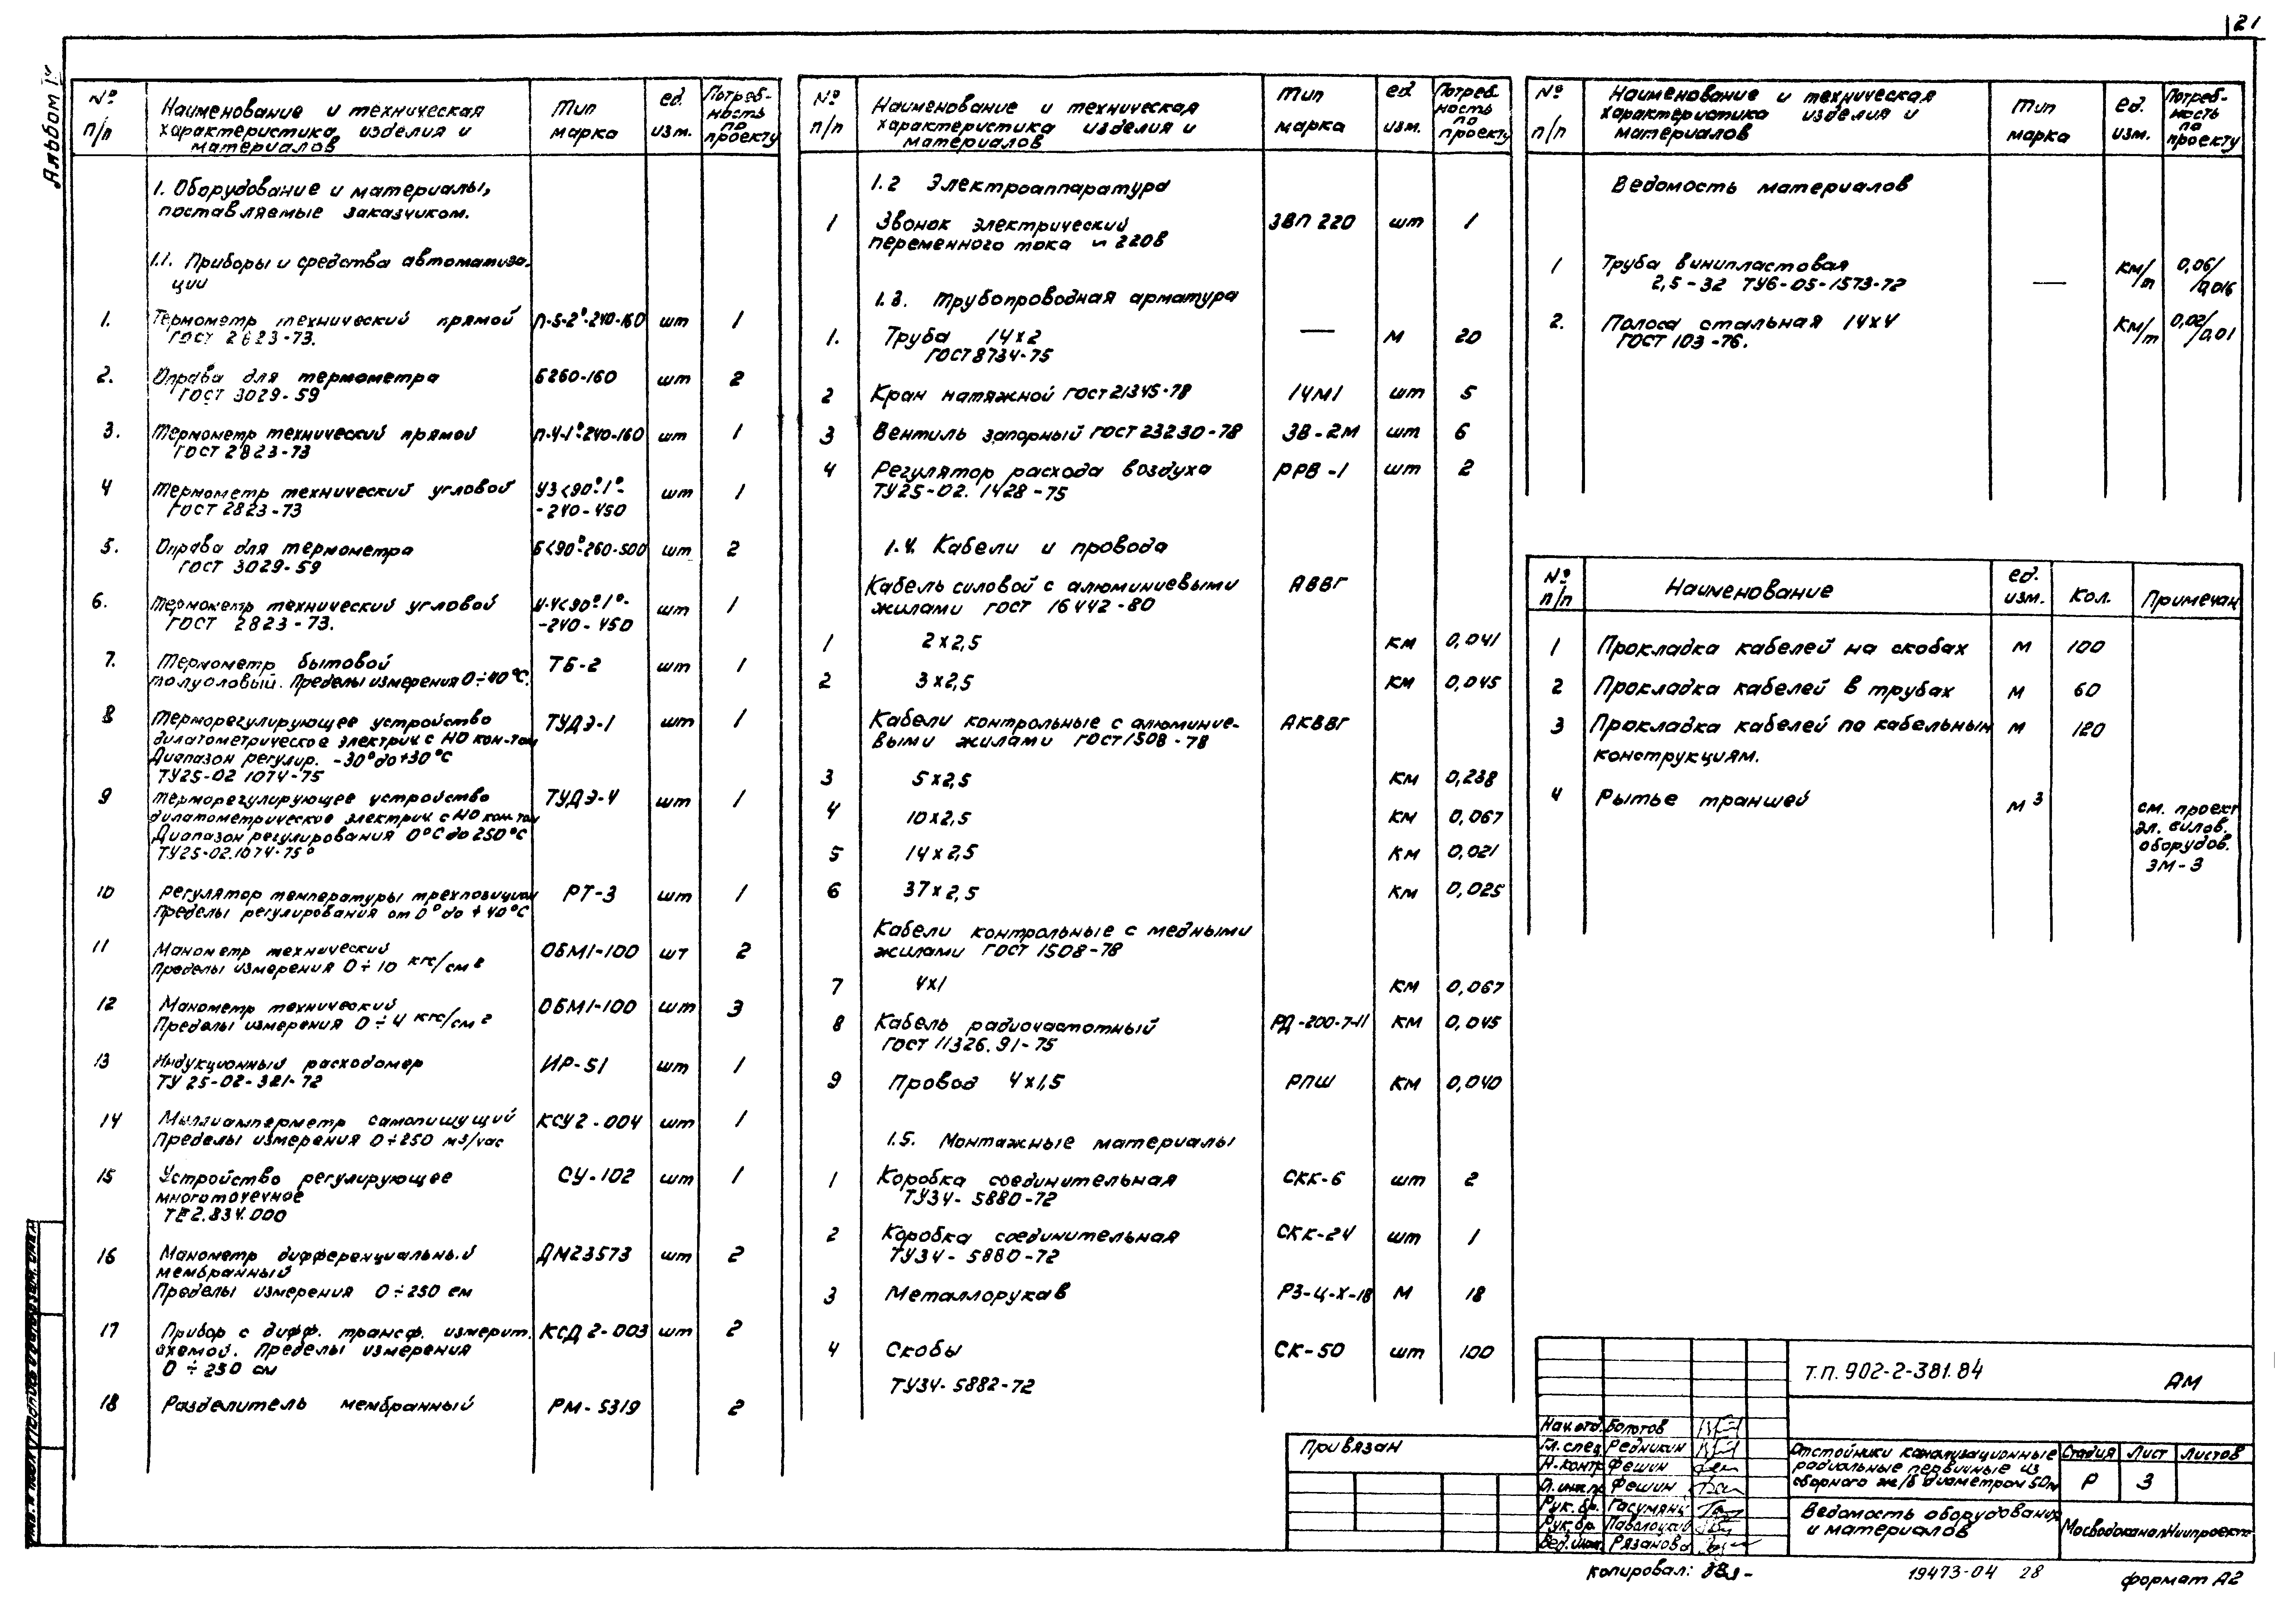 21
Альбом IV
№ п/п | Наименование и техническая характеристика изделия и материалов | Тип марка | ед. изм. | Потребность по проекту
1. Оборудование и материалы,
поставляемые заказчиком.
1.1. Приборы и средства автоматиза-
ции
1. Термометр технический прямой П-5-2°-240-160 шт 1
ГОСТ 2823-73.
2. Оправа для термометра Б260-160 шт 2
ГОСТ 3029-59
3. Термометр технический прямой П-4-1°-240-160 шт 1
ГОСТ 2823-73
4 Термометр технический угловой У3<90°-1°- шт 1
ГОСТ 2823-73 -240-450
5. Оправа для термометра Б<90°-260-500 шт 2
ГОСТ 3029-59
6. Термометр технический угловой У-4<90°-1°- шт 1
ГОСТ 2823-73. -240-450
7. Термометр бытовой ТБ-2 шт 1
Пределы измерения 0÷40°С.
8 Терморегулирующее устройство ТУДЭ-1 шт 1
дилатометрическое электрич с НО кон-том
Диапазон регулир. -30° до +30°С
ТУ25-02 1074-75
9 Терморегулирующее устройство ТУДЭ-4 шт 1
дилатометрическое электрич с НО кон-том
Диапазон регулирования 0°С до 250°С
ТУ25-02.1074-75
10 Регулятор температуры трехпозицион РТ-3 шт 1
Пределы регулирования от 0° до +40°С
11 Манометр технический ОБМ1-100 шт 2
Пределы измерения 0÷10 кгс/см²
12 Манометр технический ОБМ1-100 шт 3
Пределы измерения 0÷4 кгс/см²
13 Индукционный расходомер ИР-51 шт 1
ТУ 25-02-321-72
14 Миллиамперметр самопишущий КСУ2-004 шт 1
Пределы измерения 0÷250 м3/час
15 Устройство регулирующее СУ-102 шт 1
многоточечное
ТЕ2.834.000
16 Манометр дифференциальный ДМ23573 шт 2
мембранный
Пределы измерения 0÷250 см
17 Прибор с дифф. трансф. измерит. КСД2-003 шт 2
схемой. Пределы измерения
0÷250 см
18 Разделитель мембранный РМ-5319 2
№ п/п | Наименование и техническая характеристика изделия и материалов | Тип марка | ед. изм. | Потребность по проекту
1.2 Электроаппаратура
1 Звонок электрический ЗВП 220 шт 1
переменного тока 220В
1.3. Трубопроводная арматура
1. Труба 14х2 — М 20
ГОСТ 8734-75
2 Кран натяжной ГОСТ 21345-78 14М1 шт 5
3 Вентиль запорный ГОСТ 23230-78 ЗВ-2М шт 6
4 Регулятор расхода воздуха РРВ-1 шт 2
ТУ25-02.1428-75
1.4. Кабели и провода
Кабель силовой с алюминиевыми АВВГ
жилами ГОСТ 16442-80
1 2х2,5 км 0,041
2 3х2,5 км 0,045
Кабели контрольные с алюминие- АКВВГ
выми жилами ГОСТ 1508-78
3 5х2,5 км 0,238
4 10х2,5 км 0,067
5 14х2,5 км 0,021
6 37х2,5 км 0,025
Кабели контрольные с медными
жилами ГОСТ 1508-78
7 4х1 км 0,067
8 Кабель радиочастотный РД-200-7-11 км 0,045
ГОСТ 11326.91-75
9 Провод 4х1,5 РПШ км 0,040
1.5. Монтажные материалы
1 Коробка соединительная СКК-6 шт 2
ТУ34-5880-72
2 Коробка соединительная СКК-24 шт 1
ТУ34-5880-72
3 Металлорукав РЗ-Ц-Х-18 М 18
4 Скобы СК-50 шт 100
ТУ34-5882-72
№ п/п | Наименование и техническая характеристика изделия и материалов | Тип марка | ед. изм. | Потребность по проекту
Ведомость материалов
1 Труба винипластовая км/т 0,06/0,016
2,5-32 ТУ6-05-1573-72 —
2. Полоса стальная 14х4 км/т 0,02/0,01
ГОСТ 103-76.
№ п/п | Наименование | ед. изм. | Кол. | Примечан
1 Прокладка кабелей на скобах М 100
2 Прокладка кабелей в трубах М 60
3 Прокладка кабелей по кабельным М 120
конструкциям.
4 Рытье траншей М3 см. проект
эл. силов.
оборудов.
ЭМ-3
Привязан
Т.П. 902-2-381.84 АМ
Нач.отд. Болотов
Гл.спец. Редникин
Н.контр Фешин
Гл.инж.пр Фешин
Рук.бр. Гасумянц
Рук.бр.
Вед.инж. Рязанова
Отстойники канализационные
радиальные первичные из
сборного ж/б диаметром 50м
Стадия Лист Листов
Р 3
Ведомость оборудования
и материалов
МосводоканалНиипроект
Копировал:
19473-04 28
формат А2